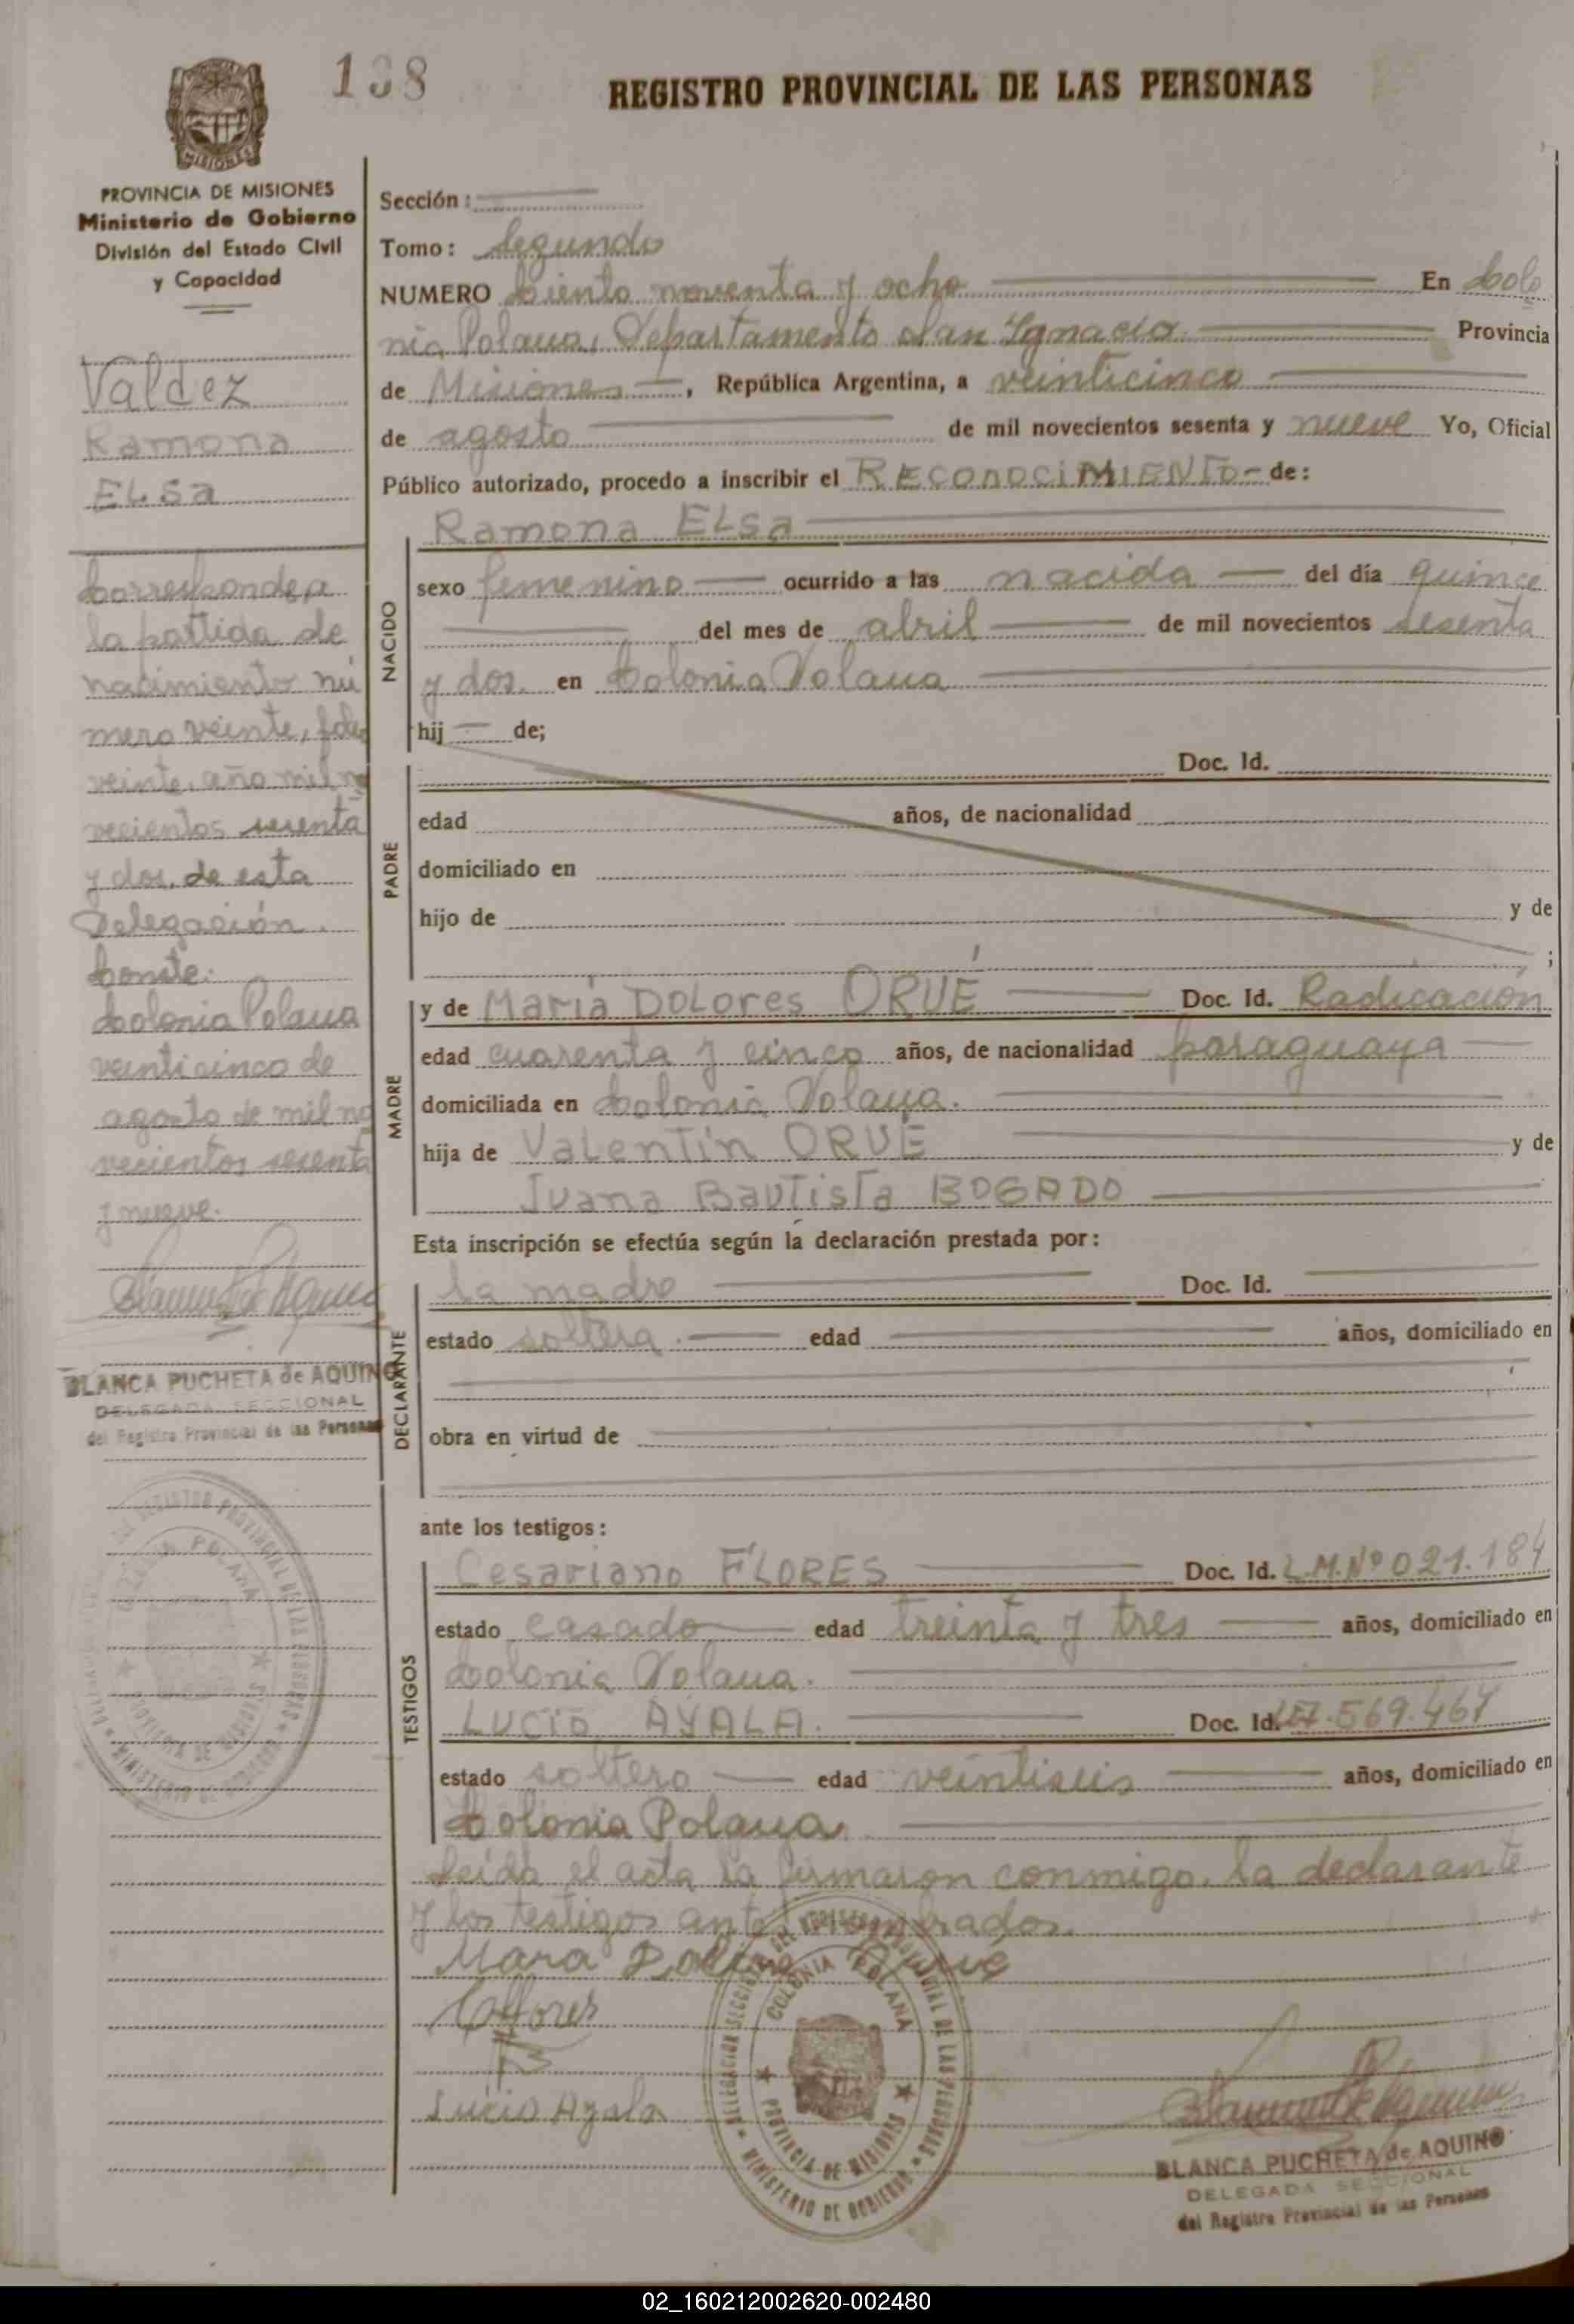 138
REGISTRO PROVINCIAL DE LAS PERSONAS
MISIONES
PROVINCIA DE MISIONES
Ministerio de Gobierno
División del Estado Civil
y Capacidad
Valdez
Ramona
ELSa
Corresponde a
la partida de
nacimiento nú
mero veinte, folio
veinte, año mil no
vecientos sesenta
y dos, de esta
Delegación.
Conste:
Colonia Polana
veinticinco de
agosto de mil no
vecientos sesenta
y nueve.
BLANCA PUCHETA de AQUINO
DELEGADA SECCIONAL
del Registro Provincial de las Personas
Sección:
Tomo: Segundo
NUMERO Ciento noventa y ocho En Colo
nia Polana, Departamento San Ignacio Provincia
de Misiones, República Argentina, a veinticinco
de agosto de mil novecientos sesenta y nueve Yo, Oficial
Público autorizado, procedo a inscribir el RECONOCIMIENTO de:
Ramona ELSa
NACIDO
sexo femenino ocurrido a las nacida del día quince
del mes de abril de mil novecientos sesenta
y dos. en Colonia Polana
hij de;
PADRE
Doc. Id.
edad años, de nacionalidad
domiciliado en
hijo de y de
;
MADRE
y de María DoLores ORUÉ Doc. Id. Radicación
edad cuarenta y cinco años, de nacionalidad paraguaya
domiciliada en Colonia Polana.
hija de VaLentín ORUÉ y de
Juana Bautista BOGADO
Esta inscripción se efectúa según la declaración prestada por:
DECLARANTE
La madre Doc. Id.
estado soltera. edad años, domiciliado en
obra en virtud de
ante los testigos:
TESTIGOS
Cesariano FLORES Doc. Id. L.M.Nº 021.184
estado casado edad treinta y tres años, domiciliado en
Colonia Polana.
LUCIO AYALA. Doc. Id. 569.467
estado soltero edad veintiseis años, domiciliado en
Colonia Polana
Leída el acta la firmaron conmigo, la declarante
y los testigos antes nombrados.
Mara Dolores Orué
CFlores
Lucio Ayala
DELEGACION SECCIONAL DEL REGISTRO PROVINCIAL DE LAS PERSONAS
COLONIA POLANA
PROVINCIA DE MISIONES
MINISTERIO DE GOBIERNO
BLANCA PUCHETA de AQUINO
DELEGADA SECCIONAL
del Registro Provincial de las Personas
02_160212002620-002480